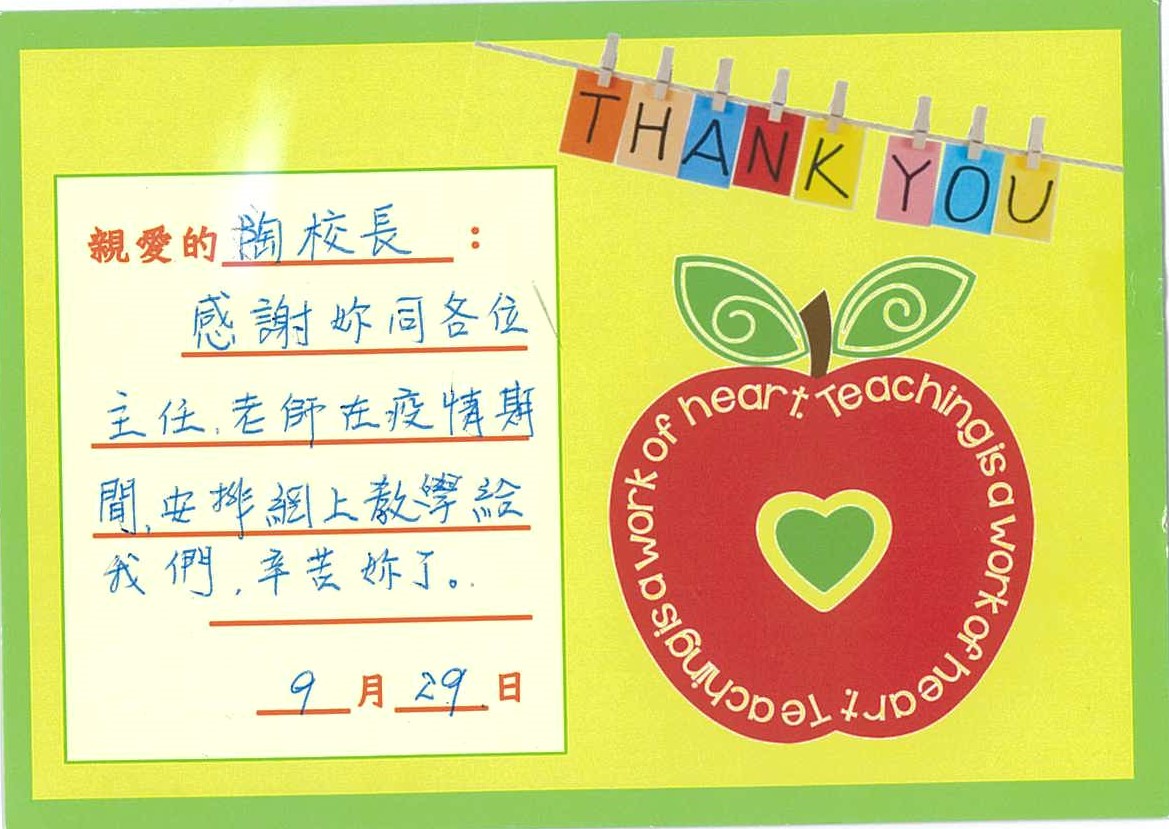 THANK YOU
親愛的 陶校長：
感謝妳同各位
主任、老師在疫情期
間,安排網上教學給
我們,辛苦妳了。
9月29日
Teaching is a work of heart. Teaching is a work of heart. Teaching is a work of heart.